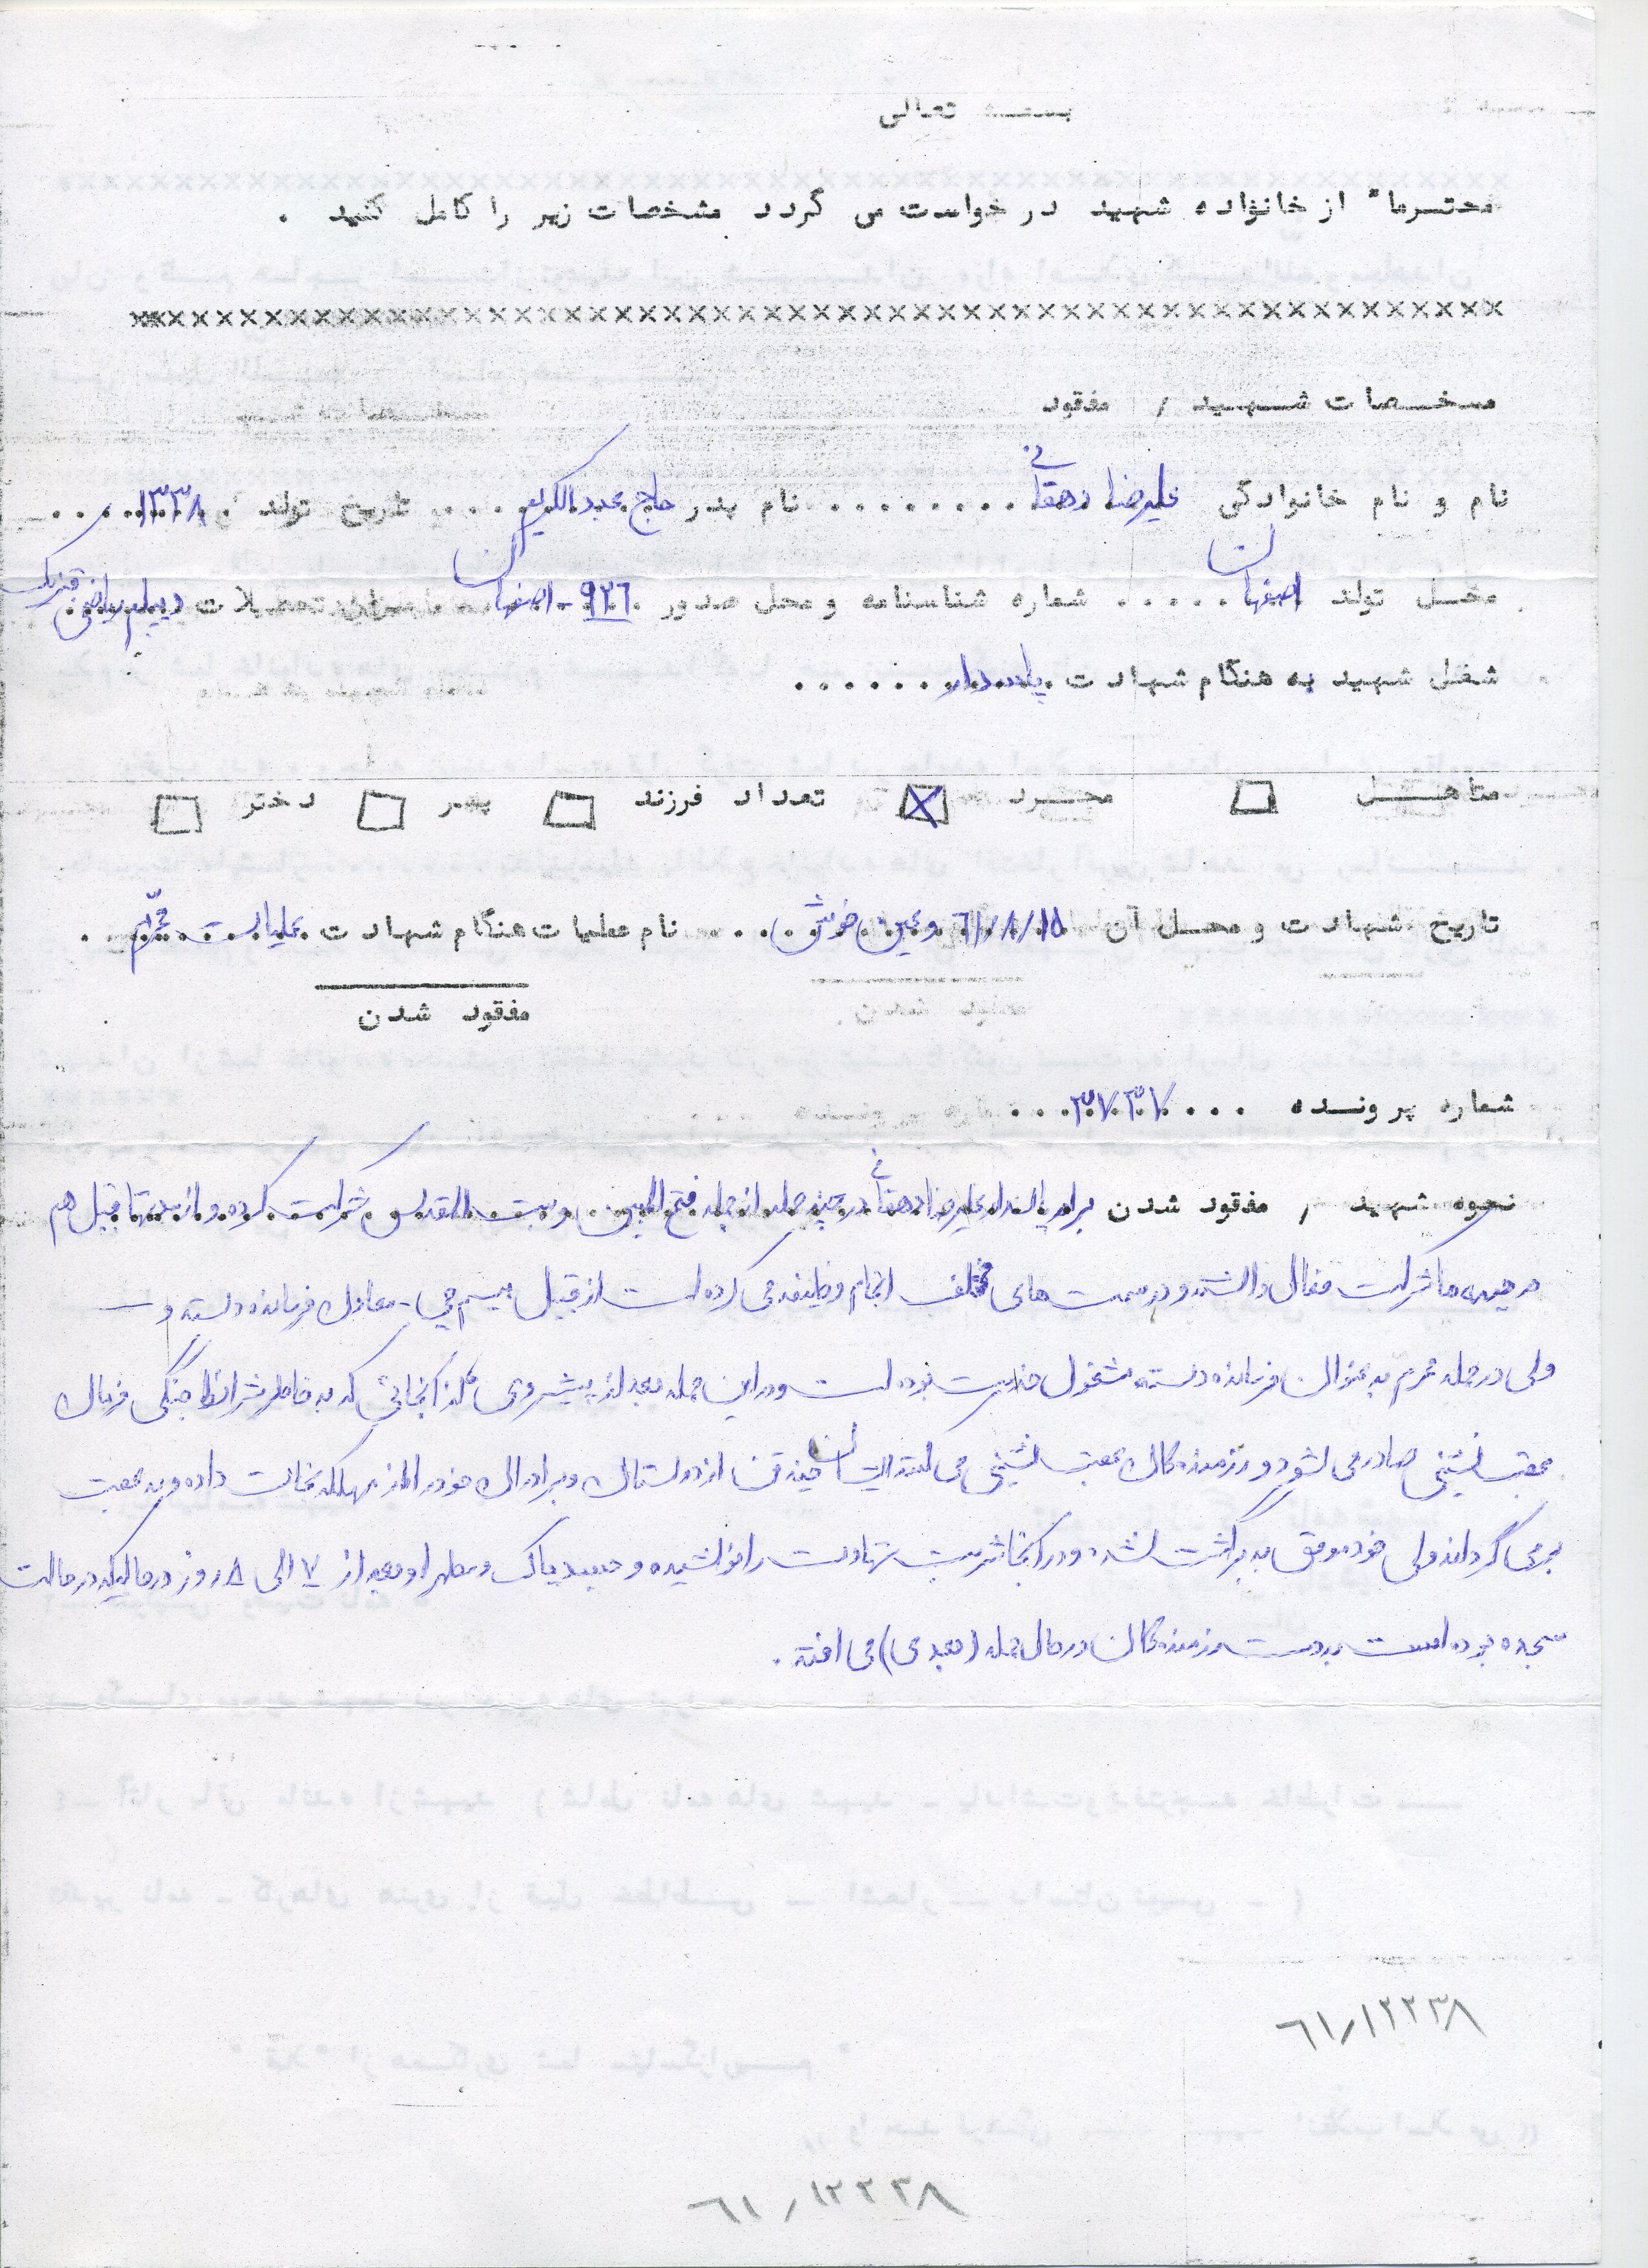 بسمه تعالی
محترما" از خانواده شهید درخواست می گردد مشخصات زیر را کامل کنید .
××××××××××××××××××××××××××××××××××××××××××××××××××××××
مشخصات شهید / مفقود
نام و نام خانوادگی علیرضا دهقانی ......... نام پدر حاج عبدالکریم .... تاریخ تولد ۱۳۳۸
محل تولد اصفهان ..... شماره شناسنامه و محل صدور ۹۲۶ - اصفهان میزان تحصیلات دیپلم ریاضی فیزیک
شغل شهید به هنگام شهادت پاسدار .......
متاهل □ مجرد ☒ تعداد فرزند □ پسر □ دختر □
تاریخ شهادت و محل آن ۶۱/۸/۱۵ و عین خوش .... نام عملیات هنگام شهادت عملیات محرّم
مفقود شدن
شماره پرونده .... ۳۷۳۷ ...
نحوه شهید / مفقود شدن برادر پاسدار علیرضا دهقانی در چند حمله از جمله فتح المبین و بیت المقدس شرکت کرده و از مدتها قبل هم
در جبهه ها شرکت فعال داشته و در سمت های مختلف انجام وظیفه می کرده است از قبیل بیسم چی - معاون فرمانده دسته و ـ
ولی در حمله محرم به عنوان فرمانده دسته مشغول خدمت بوده است و در این حمله بعد از پیشروی از آنجائی که به خاطر شرائط جنگی فرمان
عقب نشینی صادر می شود و رزمندگان عقب نشینی می کنند ایشان چند تن از دوستان و برادران خود را از مهلکه نجات داده و به عقب
برمی گرداند ولی خود موفق به برگشت نشده و در آنجا شربت شهادت را نوشیده و جسد پاک و مطهر او بعد از ۷ الی ۸ روز در حالیکه در حالت
سجده بوده است بدست رزمندگان در حال حمله (بعدی) می افتد .
۶۱/۱۲۲۳۸
۶۱/۱۲۲۳۸